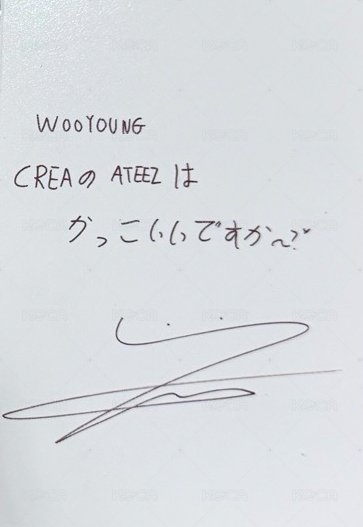 WOOYOUNG
CREAの ATEEZ は
かっこいいですか〜?